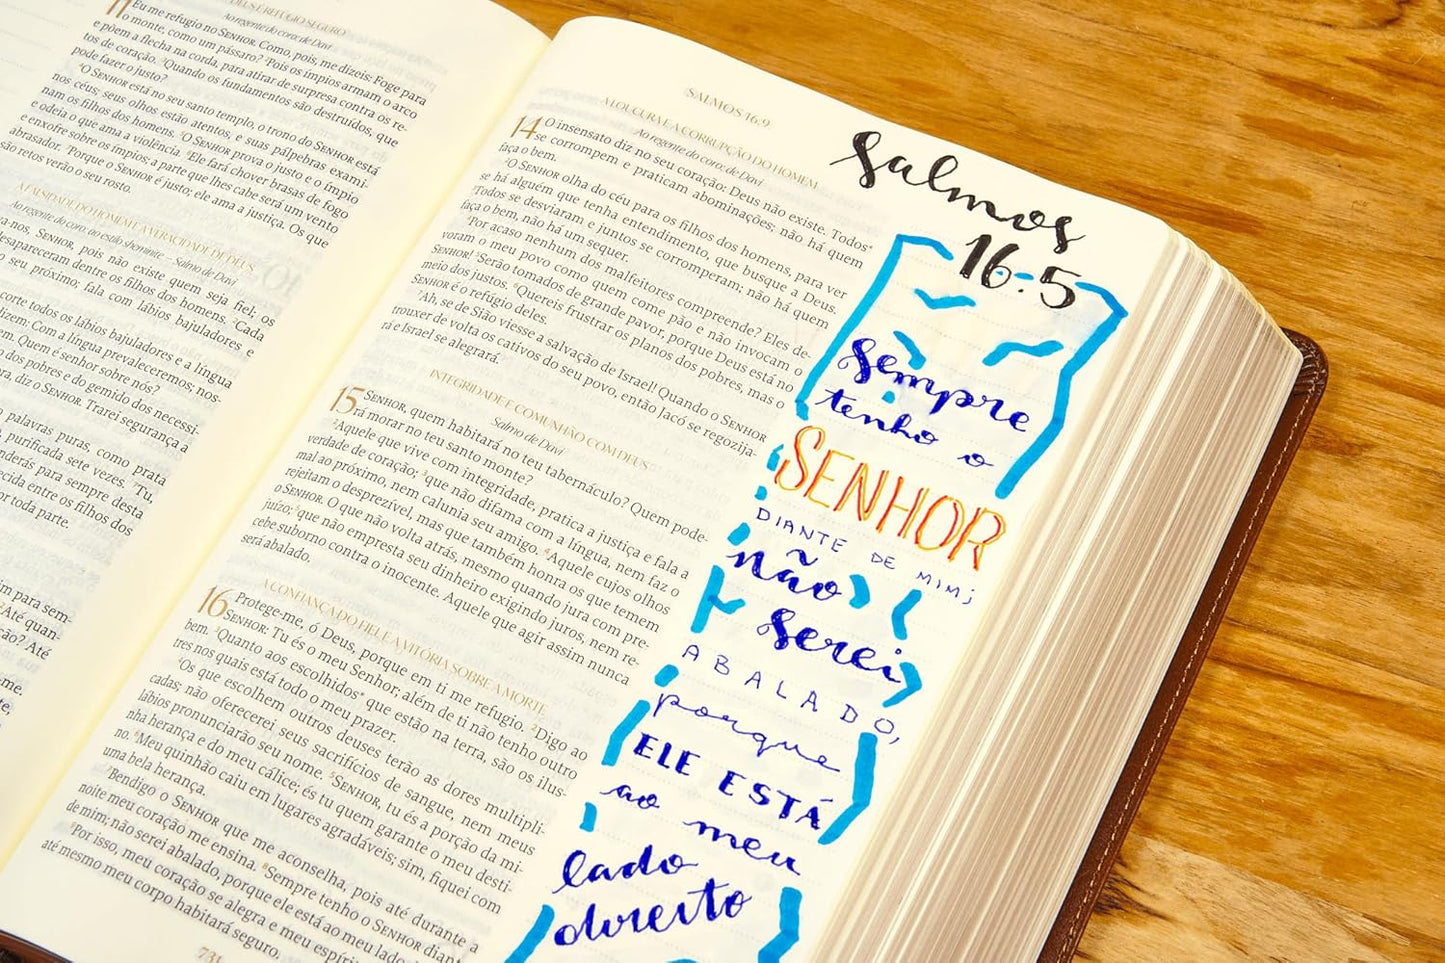 DEUS É REFÚGIO SEGURO
Ao regente do coro: de Davi
11 Eu me refugio no SENHOR. Como, pois, me dizeis: Foge para
o monte, como um pássaro? ²Pois os ímpios armam o arco
e põem a flecha na corda, para atirar de surpresa contra os re-
tos de coração. ³Quando os fundamentos são destruídos, que
pode fazer o justo?
⁴O SENHOR está no seu santo templo, o trono do SENHOR está
nos céus; seus olhos estão atentos, e suas pálpebras exami-
nam os filhos dos homens. ⁵O SENHOR prova o justo e o ímpio
e odeia o que ama a violência. ⁶Ele fará chover brasas de fogo
e enxofre sobre os ímpios; a parte que lhes cabe será um vento
abrasador. ⁷Porque o SENHOR é justo; ele ama a justiça. Os que
são retos verão o seu rosto.
A FALSIDADE DO HOMEM E A VERACIDADE DE DEUS
Ao regente do coro: ao estilo sheminite – Salmo de Davi
a-nos, SENHOR, pois não existe quem seja fiel; os
desapareceram dentre os filhos dos homens. ²Cada
o seu próximo; fala com lábios bajuladores e
corte todos os lábios bajuladores e a língua
dizem: Com a língua prevaleceremos; nos-
em. Quem é senhor sobre nós?
o dos pobres e do gemido dos necessi-
ra, diz o SENHOR. Trarei segurança a
palavras puras, como prata
purificada sete vezes. ⁷Tu,
nderás para sempre desta
cida entre os filhos dos
or toda parte.
im para sem-
²Até quan-
ção? Até
-me.
SALMOS 16.9
A LOUCURA E A CORRUPÇÃO DO HOMEM
Ao regente do coro: de Davi
14 O insensato diz no seu coração: Deus não existe. Todos
se corrompem e praticam abominações; não há quem
faça o bem.
²O SENHOR olha do céu para os filhos dos homens, para ver
se há alguém que tenha entendimento, que busque a Deus.
³Todos se desviaram e juntos se corromperam; não há quem
faça o bem, não há um sequer.
⁴Por acaso nenhum dos malfeitores compreende? Eles de-
voram o meu povo como quem come pão e não invocam o
SENHOR! ⁵Serão tomados de grande pavor, porque Deus está no
meio dos justos. ⁶Quereis frustrar os planos dos pobres, mas o
SENHOR é o refúgio deles.
⁷Ah, se de Sião viesse a salvação de Israel! Quando o SENHOR
trouxer de volta os cativos do seu povo, então Jacó se regozija-
rá e Israel se alegrará.
INTEGRIDADE E COMUNHÃO COM DEUS
Salmo de Davi
15 SENHOR, quem habitará no teu tabernáculo? Quem pode-
rá morar no teu santo monte?
²Aquele que vive com integridade, pratica a justiça e fala a
verdade de coração; ³que não difama com a língua, nem faz o
mal ao próximo, nem calunia seu amigo. ⁴Aquele cujos olhos
rejeitam o desprezível, mas que também honra os que temem
o SENHOR. O que não volta atrás, mesmo quando jura com pre-
juízo; ⁵que não empresta seu dinheiro exigindo juros, nem re-
cebe suborno contra o inocente. Aquele que agir assim nunca
será abalado.
A CONFIANÇA DO FIEL E A VITÓRIA SOBRE A MORTE
16 Protege-me, ó Deus, porque em ti me refugio. ²Digo ao
SENHOR: Tu és o meu Senhor; além de ti não tenho outro
bem. ³Quanto aos escolhidos que estão na terra, são os ilus-
tres nos quais está todo o meu prazer.
⁴Os que escolhem outros deuses terão as dores multipli-
cadas; não oferecerei seus sacrifícios de sangue, nem meus
lábios pronunciarão seu nome. ⁵SENHOR, tu és a porção da mi-
nha herança e do meu cálice; és tu quem garante o meu desti-
no. ⁶Meu quinhão caiu em lugares agradáveis; sim, fiquei com
uma bela herança.
⁷Bendigo o SENHOR que me aconselha, pois até durante a
noite meu coração me ensina. ⁸Sempre tenho o SENHOR diant
de mim; não serei abalado, porque ele está ao meu lado d
⁹Por isso, meu coração se alegra e meu espíri
até mesmo meu corpo habitará seguro.
731
Salmos
16:5
Sempre
tenho o
SENHOR
DIANTE DE MIM;
não
serei
ABALADO,
porque
ELE ESTÁ
ao meu
lado
direito